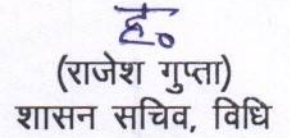 ह.
(राजेश गुप्ता)
शासन सचिव, विधि